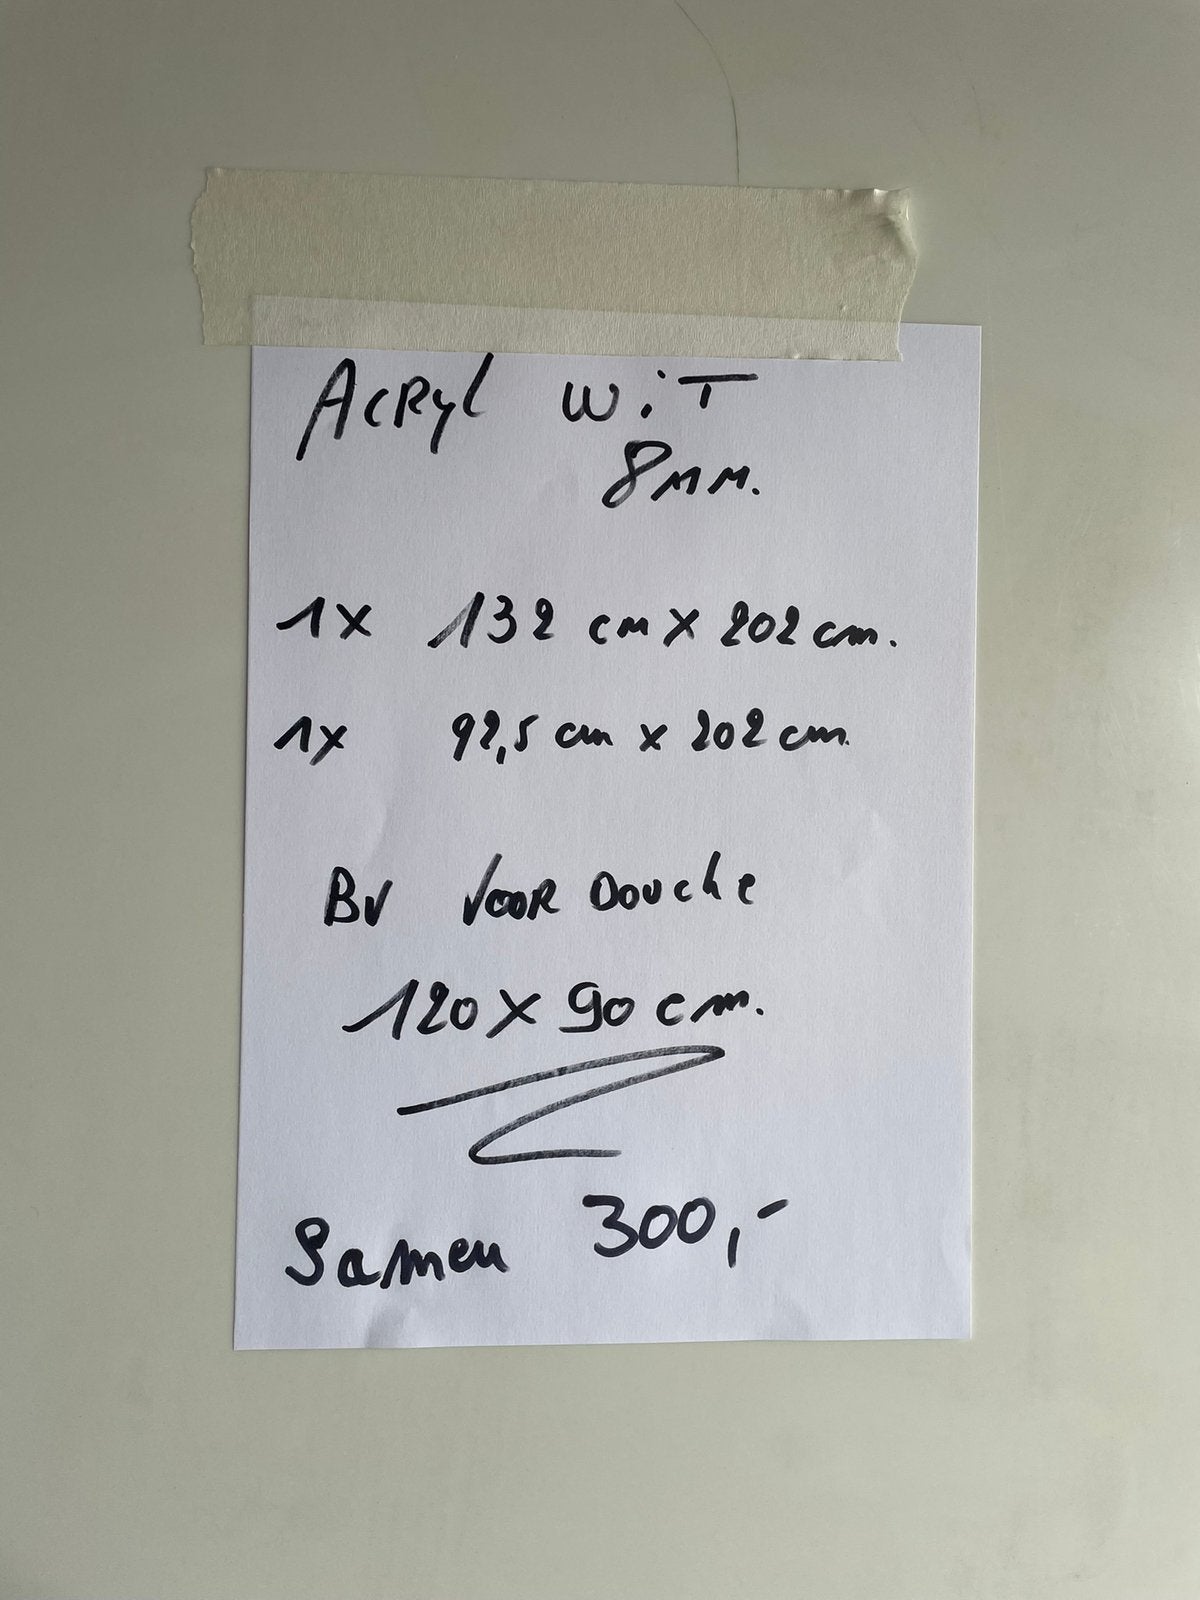 Acryl wit
8mm.
1x 132 cm x 202 cm.
1x 92,5 cm x 202 cm.
BV voor Douche
120 x 90 cm.
Samen 300,-